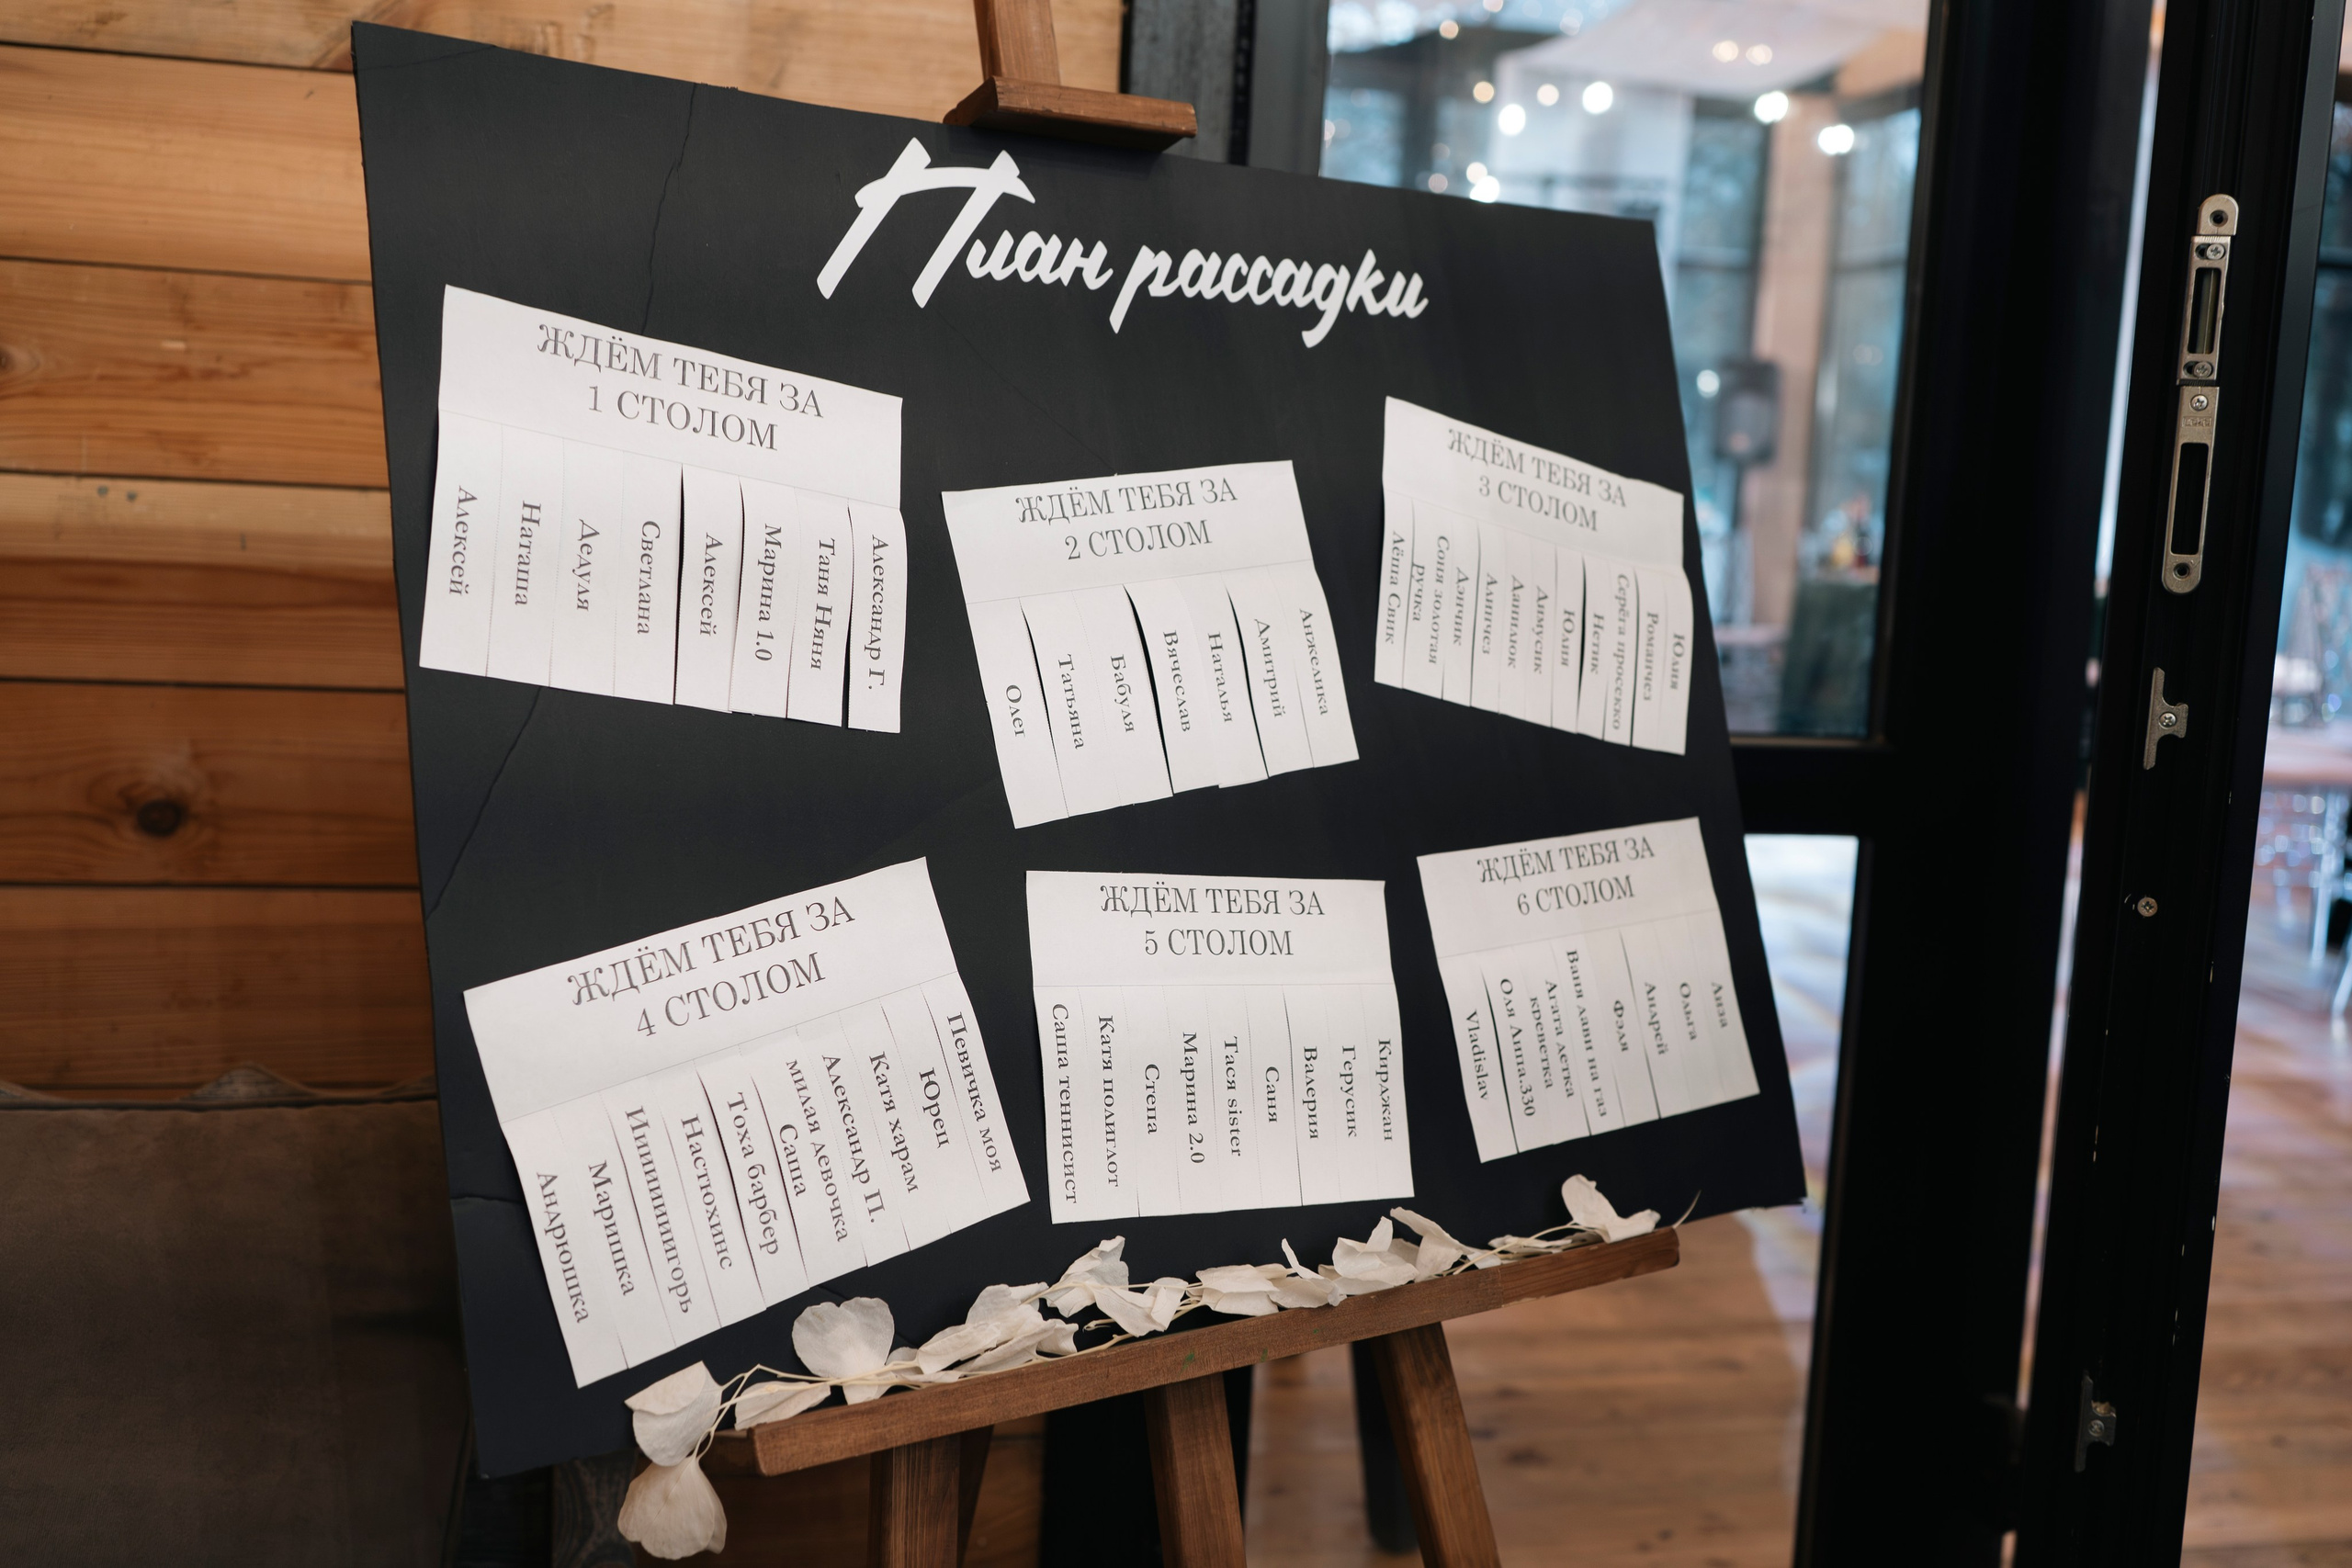 План рассадки
ЖДЁМ ТЕБЯ ЗА
1 СТОЛОМ
Алексей
Наташа
Дедуля
Светлана
Алексей
Марина 1.0
Таня Няня
Александр Г.
ЖДЁМ ТЕБЯ ЗА
2 СТОЛОМ
Олег
Татьяна
Бабуля
Вячеслав
Наталья
Дмитрий
Анжелика
ЖДЁМ ТЕБЯ ЗА
3 СТОЛОМ
Лёша Свик
Соня золотая
ручка
Дэнчик
Алинчез
Данилюк
Анмусик
Юлия
Нетик
Серёга просекко
Романчез
Юлия
ЖДЁМ ТЕБЯ ЗА
4 СТОЛОМ
Андрюшка
Маришка
Ииииииигорь
Настюхинс
Тоха барбер
Саша
милая девочка
Александр П.
Катя харам
Юрец
Певичка моя
ЖДЁМ ТЕБЯ ЗА
5 СТОЛОМ
Саша теннисист
Катя полиглот
Степа
Марина 2.0
Тася sister
Саня
Валерия
Герусик
Кирджан
ЖДЁМ ТЕБЯ ЗА
6 СТОЛОМ
Vladislav
Оля Липа.330
Агата детка
креветка
Ваня дави на газ
Фэля
Андрей
Ольга
Лиза